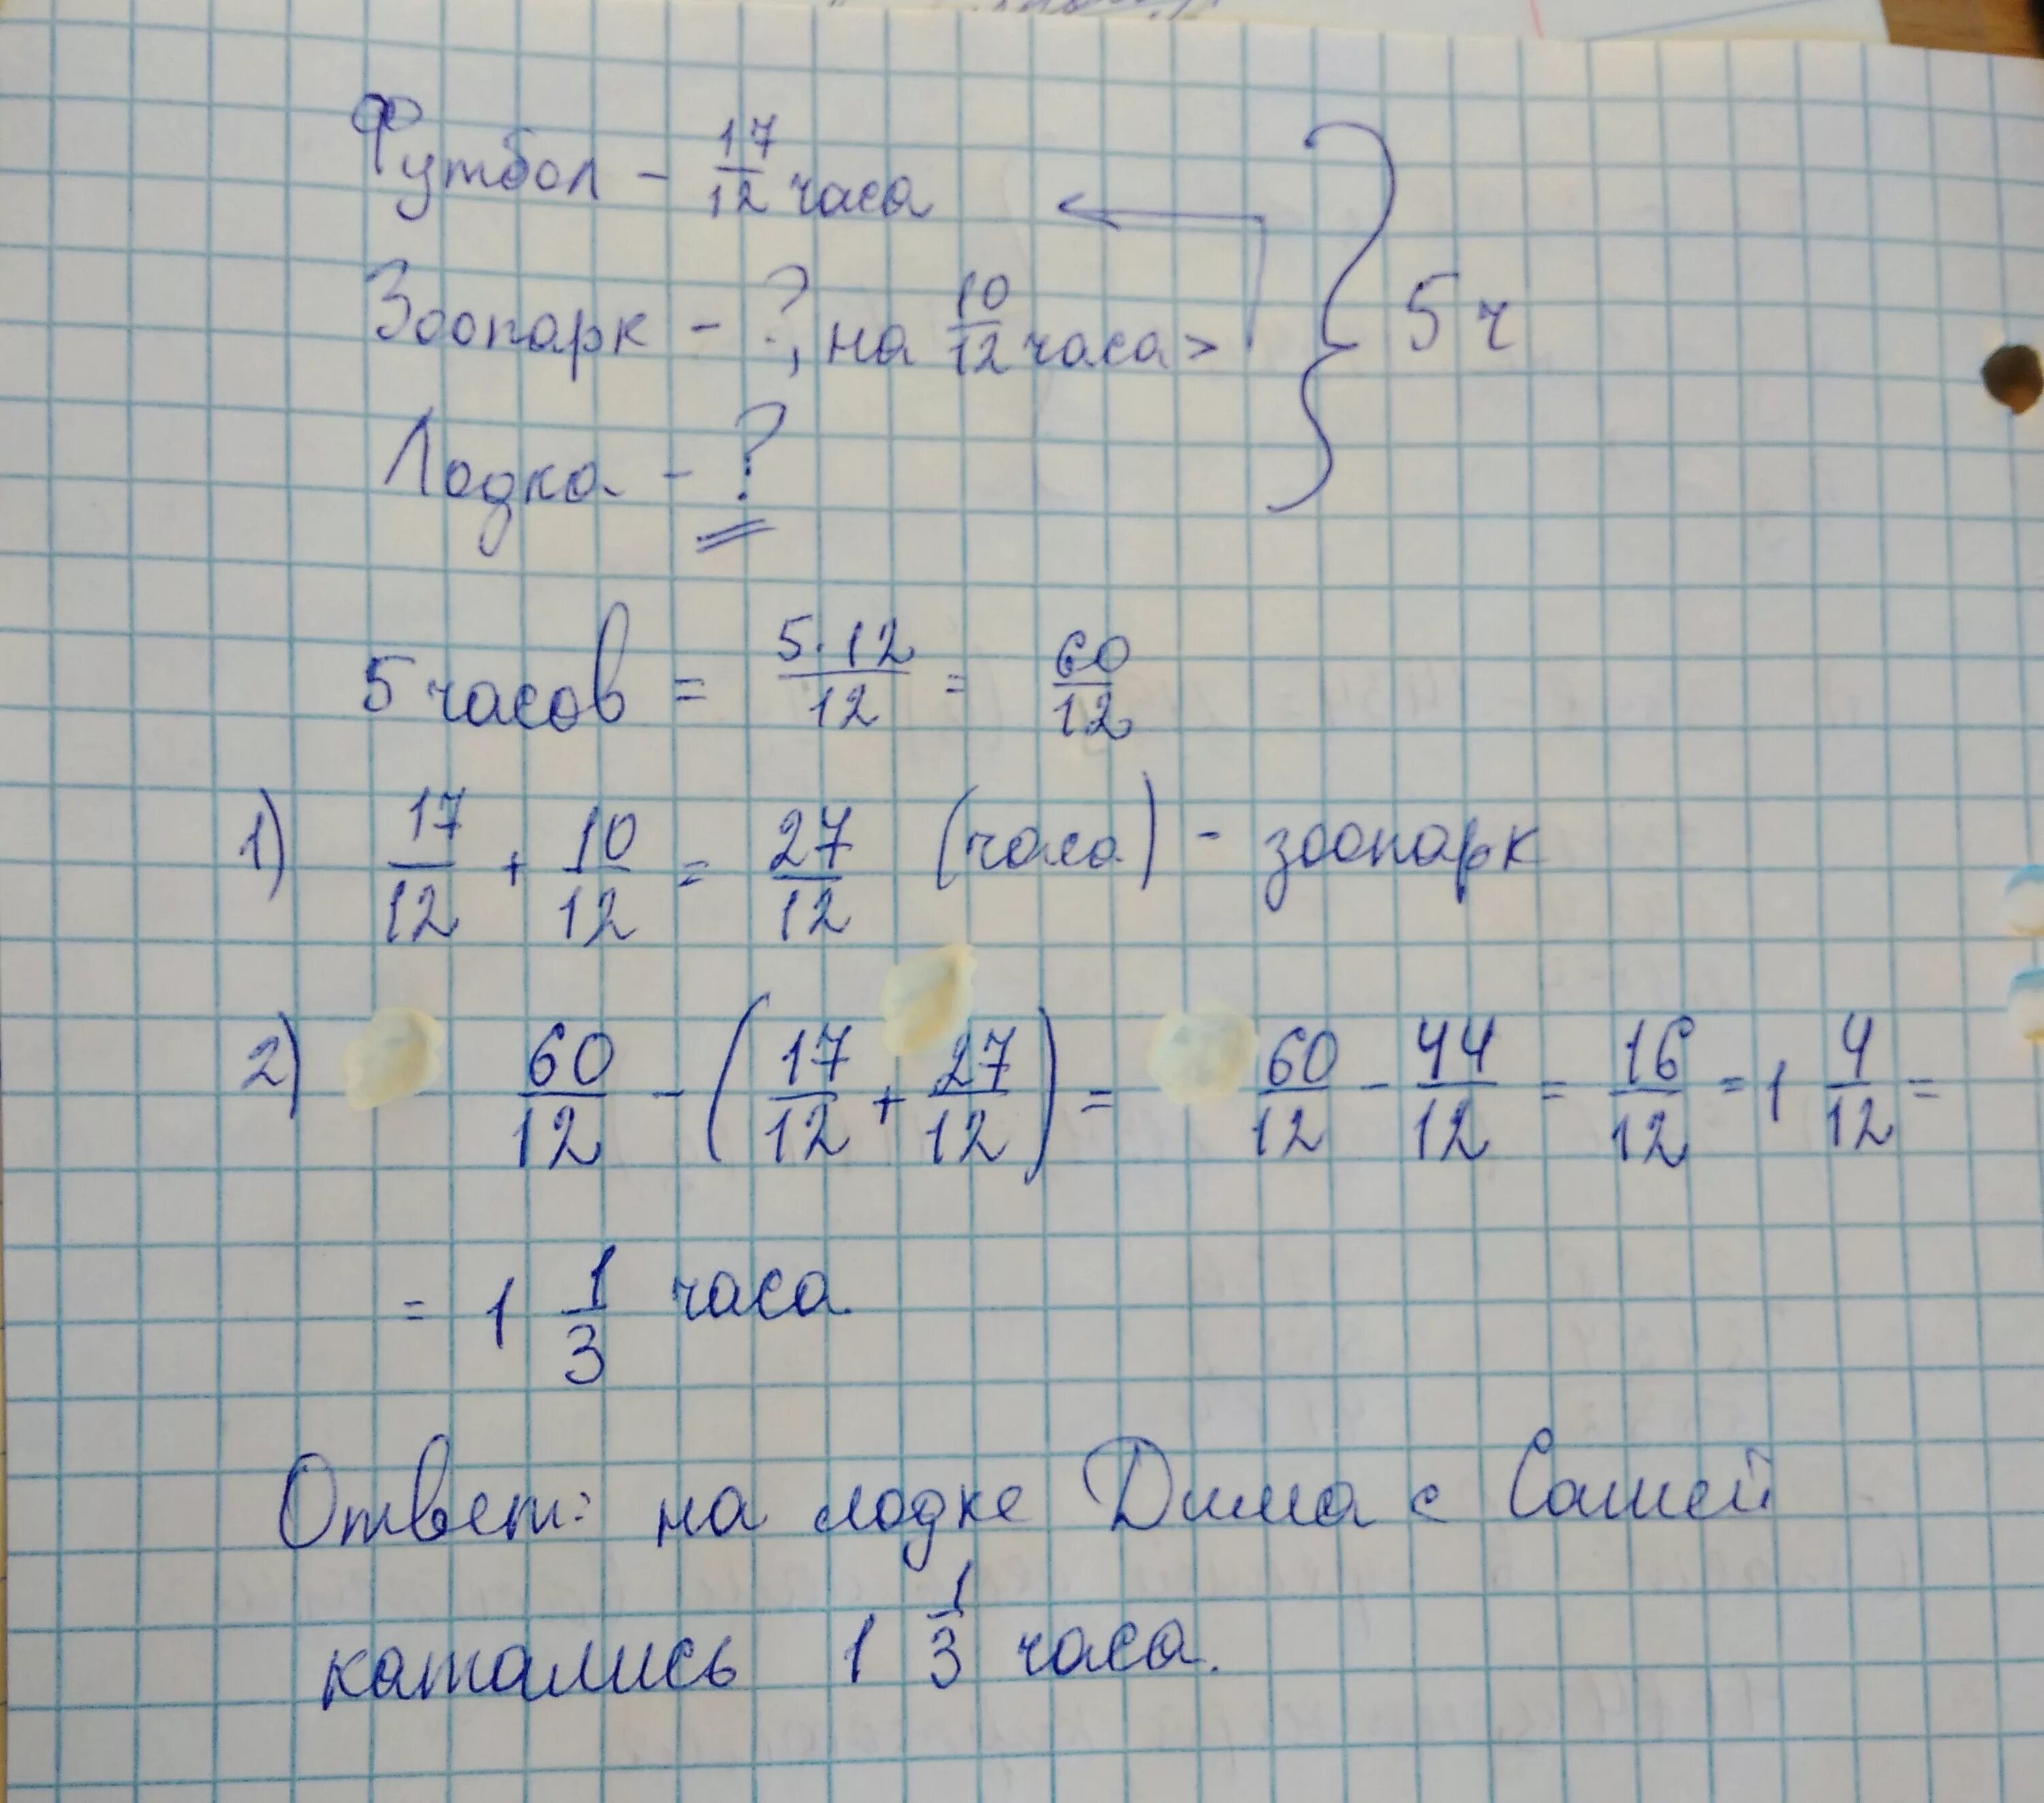 Футбол – 17/12 часа
Зоопарк – ?, на 10/12 часа > } 5 ч
Лодка – ?
5 часов = 5·12/12 = 60/12
1) 17/12 + 10/12 = 27/12 (часа) – зоопарк
2) 60/12 – (17/12 + 27/12) = 60/12 – 44/12 = 16/12 = 1 4/12 =
= 1 1/3 часа
Ответ: на лодке Дима с Сашей
катались 1 1/3 часа.